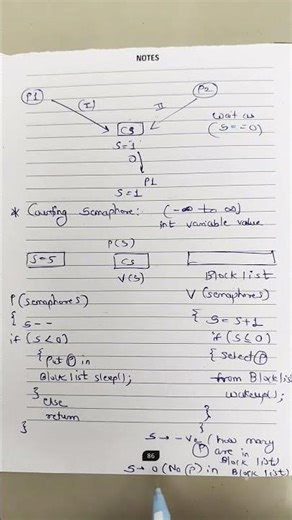 NOTES
P1 I) II P2
CS wait as
S=1 (S==0)
0
P1
S=1
* Counting Semaphore: (-∞ to ∞)
int variable value
P(S)
S=5 CS
V(S) Block list
P(semaphores) V (semaphores)
{ S-- { S=S+1
if (S<0) if (S≤0)
{ Put P in { Select P
Block list sleep(); from Block list
} else wakeup();
return }
} }
S → -ve (how many
P are in
Block list)
86
S → 0 (No P) in Block list